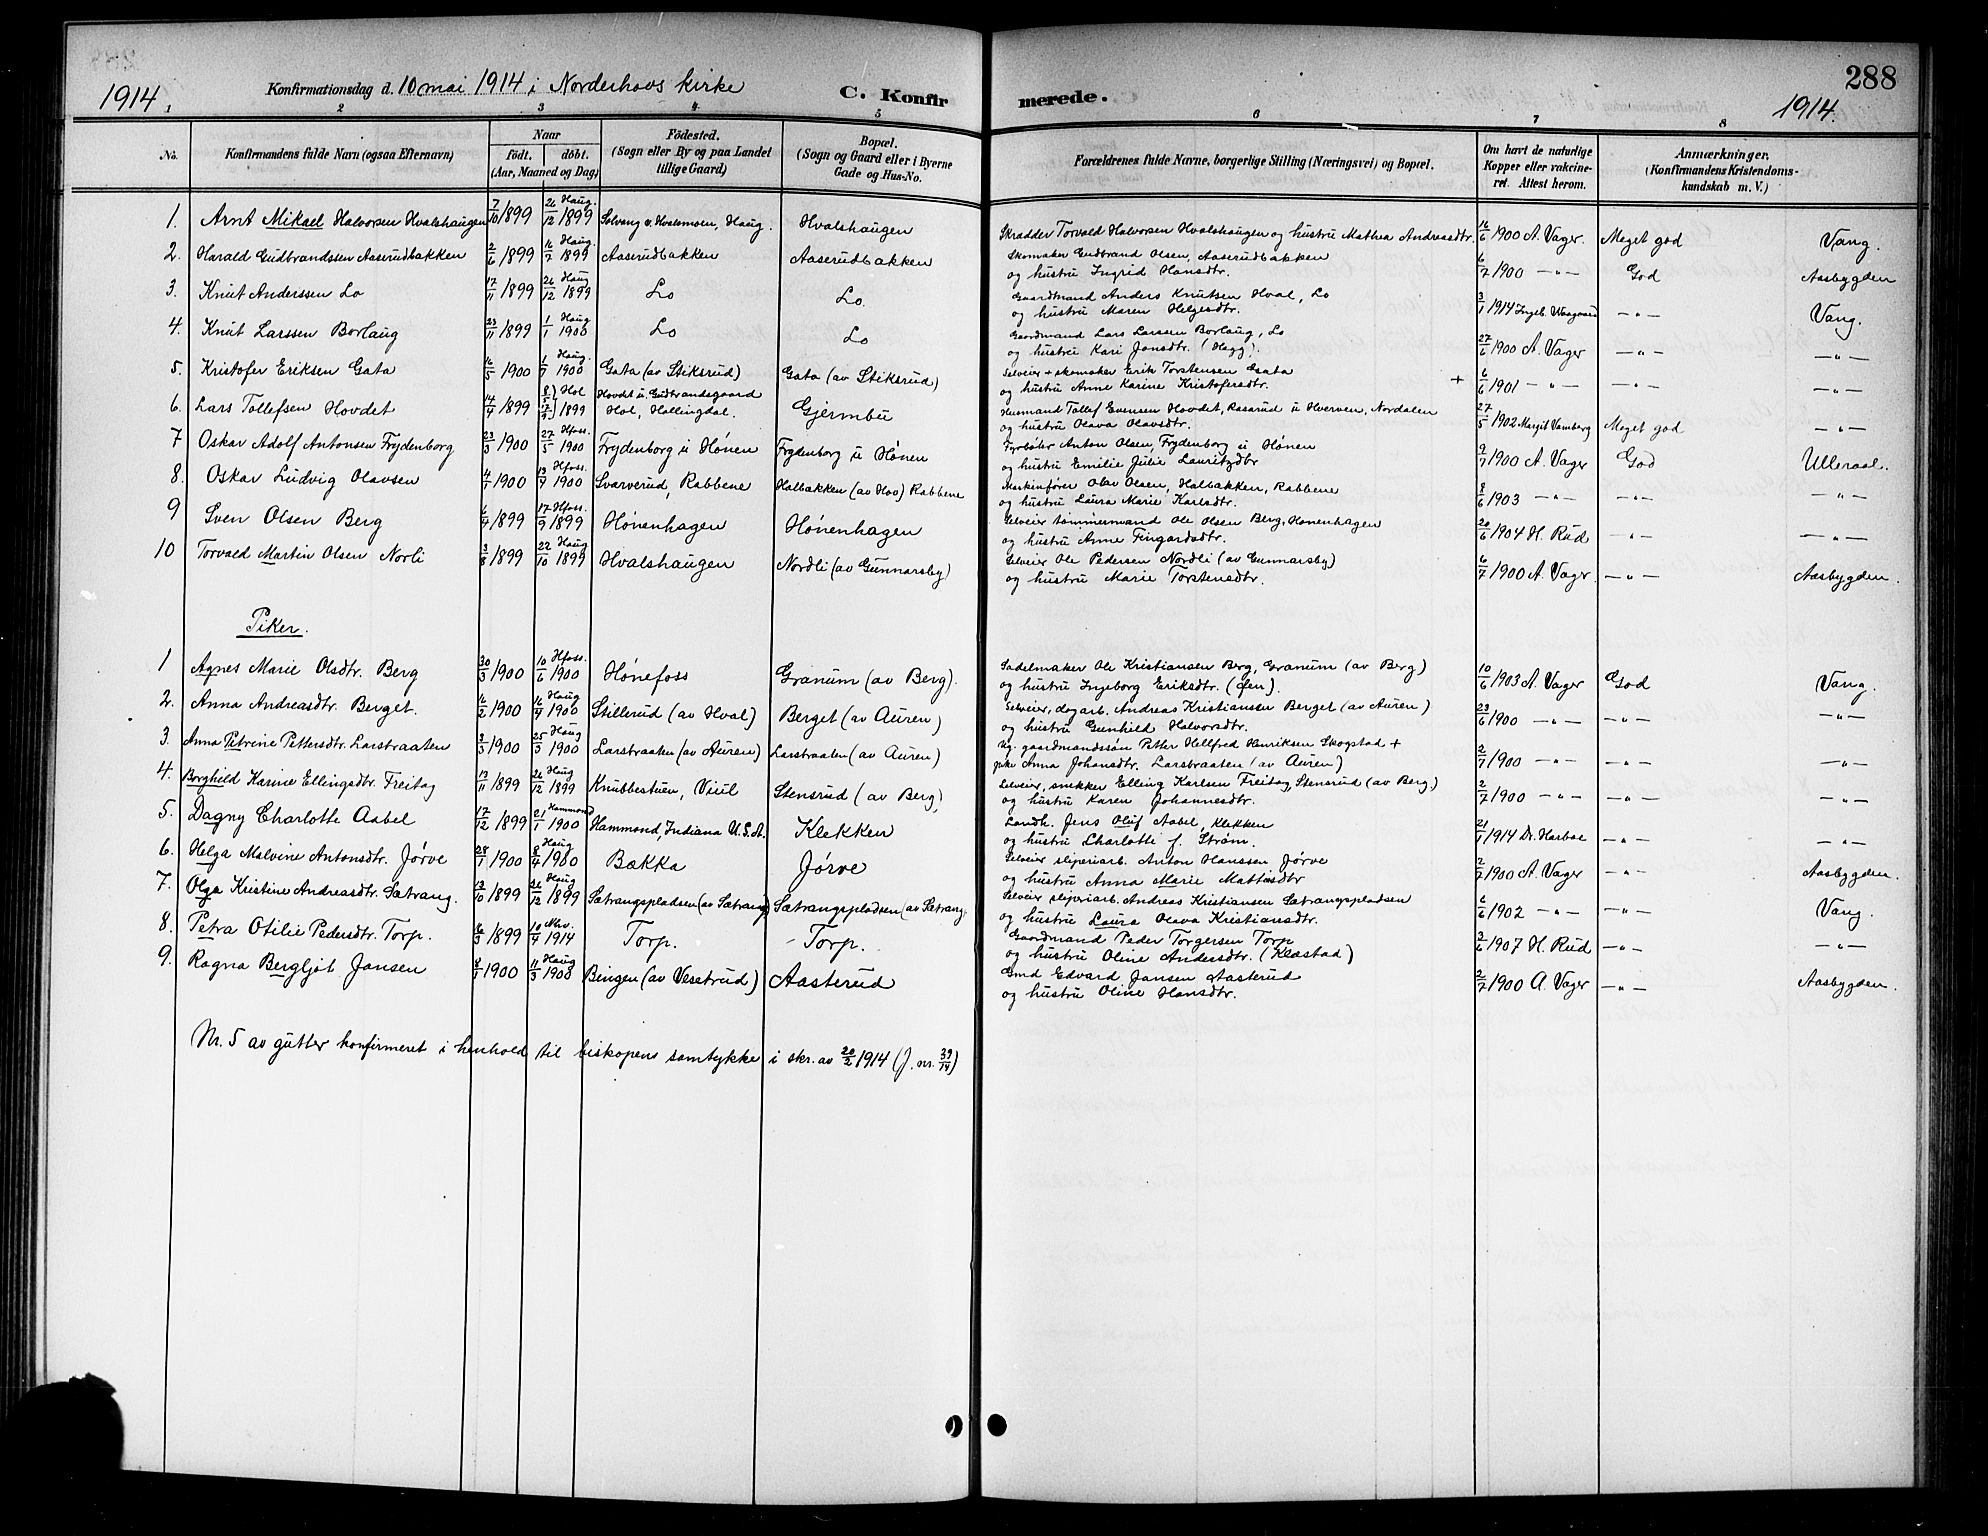 288
1914
Konfirmationsdag d. 10 mai 1914 i Norderhovs kirke
C. Konfirmerede.
1914.
1 2 3 4 5 6 7 8
No. | Konfirmandens fulde Navn (ogsaa Efternavn) | Naar født. døbt. (Aar, Maaned og Dag) | Födested. (Sogn eller By og paa Landet tillige Gaard) | Bopæl. (Sogn og Gaard eller i Byerne Gade og Hus-No. | Forældrenes fulde Navne, borgerlige Stilling (Næringsvei) og Bopæl. | Om havt de naturlige Kopper eller vakcineret. Attest herom. | Anmærkninger, (Konfirmandens Kristendomskundskab m. V.)
1. Arnt Mikael Halvorsen Hvalshaugen | 7/10 1899 | 26/12 1899 Haug. | Solvang u. Hvalsmoen, Haug. | Hvalshaugen | Skrædder Torvald Halvorsen Hvalshaugen og hustru Mathea Andreasdtr. | 16/6 1900 A. Vager. | Meget god | Vang.
2. Harald Gudbrandssen Aaserudbakken | 2/6 1899 | 16/7 1899 Haug. | Aaserudbakken | Aaserudbakken | Skomaker Gudbrand Olsen, Aaserudbakken
og hustru Ingrid Hansdtr. | 6/7 1900 —"— | God | Aasbygden
3. Knut Anderssen Lo | 17/11 1899 | 26/12 1899 Haug | Lo | Lo. | Gaardmand Anders Knutsen Hval, Lo
og hustru Maren Helgesdtr. | 3/1 1914 Ingeb. Waagaard | —"— | Vang.
4. Knut Larssen Borlaug | 23/11 1899 | 1/1 1900 Haug | Lo | Lo | Gaardmand Lars Larssen Borlaug, Lo
og hustru Kari Jonsdtr. (Hagg). | 27/6 1900 A. Vager | —"— | —"—
5. Kristofer Eriksen Gata | 16/5 1900 | 1/7 1900 Haug. | Gata (av Stiksrud) | Gata (av Stiksrud) | Selveier + skomaker Erik Torstensen Gata
og hustru Anne Karine Kristofersdtr. | + 6/6 1901 —"— | —"— | —"—
6. Lars Tollefsen Hovdet | 14/4 1899 | 1899 Hol | Hovdet u. Gudbrandsgaard
Hol, Hallingdal. | Gjermbu | Husmand Tollef Evensen Hovdet, Rasarud u Hverven, Nordalen
og hustru Olava Olavsdtr. | 27/5 1902 Margit Vamberg | Meget god | —"—
7 Oskar Adolf Antonsen Frydenborg | 23/3 1900 | 27/5 1900 Hfoss. | Frydenborg u Hønen | Frydenborg u Hønen | Fyrbøter Anton Olsen, Frydenborg u Hønen
og hustru Emilie Julie Lauritzdtr | 9/7 1900 A. Vager | God | Ulleraal.
8. Oskar Ludvig Olavsen | 4/7 1900 | 19/9 1900 Hfoss. | Svarverud, Rabbene | Halbakken (av Hov) Rabbene | Maskinfører Olav Olsen, Halbakken, Rabbene
og hustru Laura Marie Karlsdtr. | 8/6 1903 —"— | —"— | —"—
9 Sven Olsen Berg | 6/7 1899 | 17/9 1899 Hfoss. | Hønenhagen | Hønenhagen | Selveier tømmermand Ole Olsen Berg, Hønenhagen
og hustru Anne Fingarsdtr. | 20/6 1904 H. Rud | —"— | —"—
10 Torvald Martin Olsen Norli | 3/8 1899 | 22/10 1899 Haug | Hvalshaugen | Nordli (av Gunnarsby) | Selveier Ole Pedersen Nordli (av Gunnarsby)
og hustru Marie Torstensdtr. | 6/7 1900 A. Vagr | —"— | Aasbygden.
Piker.
1 Agnes Marie Olsdtr. Berg | 30/3 1900 | 10/6 1900 Hfoss. | Hønefoss | Granum (av Berg). | Sadelmaker Ole Kristiansen Berg, Granum (av Berg)
og hustru Ingeborg Eriksdtr. (Øen). | 10/6 1903 A. Vager | God | Vang.
2. Anna Andreasdtr. Berget. | 16/2 1900 | 16/4 1900 Haug | Stillerud (av Hval) | Berget (av Auren) | Selveier, dagarb. Andreas Kristiansen Berget (av Auren)
og hustru Gunhild Halvorsdtr. | 23/6 1900 —"— | —"— | —"—
3. Anna Petrine Pettersdtr. Larstraaten | 3/3 1900 | 25/3 1900 Haug | Larstraaten (av Auren) | Larstraaten (av Auren) | Ug. gaardmandssøn Petter Hellfred Henriksen Skogstad +
pike Anna Johansdtr. Larsbraaten (av Auren) | 2/7 1900 —"— | —"— | —"—
4. Borghild Karine Ellingsdtr. Freitag | 13/11 1899 | 26/12 1899 Haug | Knubbestuen, Viul | Stensrud (av Berg) | Selveier, snekker Elling Karlsen Freitag, Stensrud (av Berg)
og hustru Karen Johannesdtr. | 2/7 1900 —"— | —"— | —"—
5. Dagny Charlotte Aabel | 17/12 1899 | 21/1 1900 Hammond | Hammond, Indiana U.S.A. | Klekken | Landh. Jens Oluf Aabel, Klekken
og hustru Charlotte f. Strøm. | 21/1 1914 Dr. Harboe | —"— | —"—
6. Helga Malvine Antonsdtr. Jørve | 28/1 1900 | 8/4 1900 Haug | Bækka | Jørve | Selveier sliperiarb. Anton Hanssen Jørve
og hustru Anna Marie Mattisdtr | 2/7 1900 A. Vager | —"— | Aasbygden.
7. Olga Kristine Andreasdtr. Sætrang. | 13/10 1899 | 26/12 1899 Haug | Sætrangspladsen (av Sætrang) | Sætrangspladsen (av Sætrang. | Selveier sliperiarb. Andreas Kristiansen Sætrangspladsen
og hustru Laura Olava Kristiansdtr. | 6/6 1902 —"— | —"— | Vang.
8. Petra Otilie Pedersdtr. Torp. | 16/3 1899 | 10/4 1914 Nhv. | Torp. | Torp. | Gaardmand Peder Torgersen Torp
og hustru Oline Andersdtr. (Klæstad) | 3/6 1907 H. Rud | —"— | —"—
9. Ragna Bergljot Jansen | 8/1 1900 | 11/3 1900 Haug | Bingen (av Vesetrud) | Aasterud | Gmd Edvard Jansen Aasterud
og hustru Oline Hansdtr. | 2/7 1900 A. Vager | —"— | Aasbygden.
Nr. 5 av gutter konfirmeret i henhold til biskopens samtykke i skr. av 20/2 1914 (J. nr. 39/14)